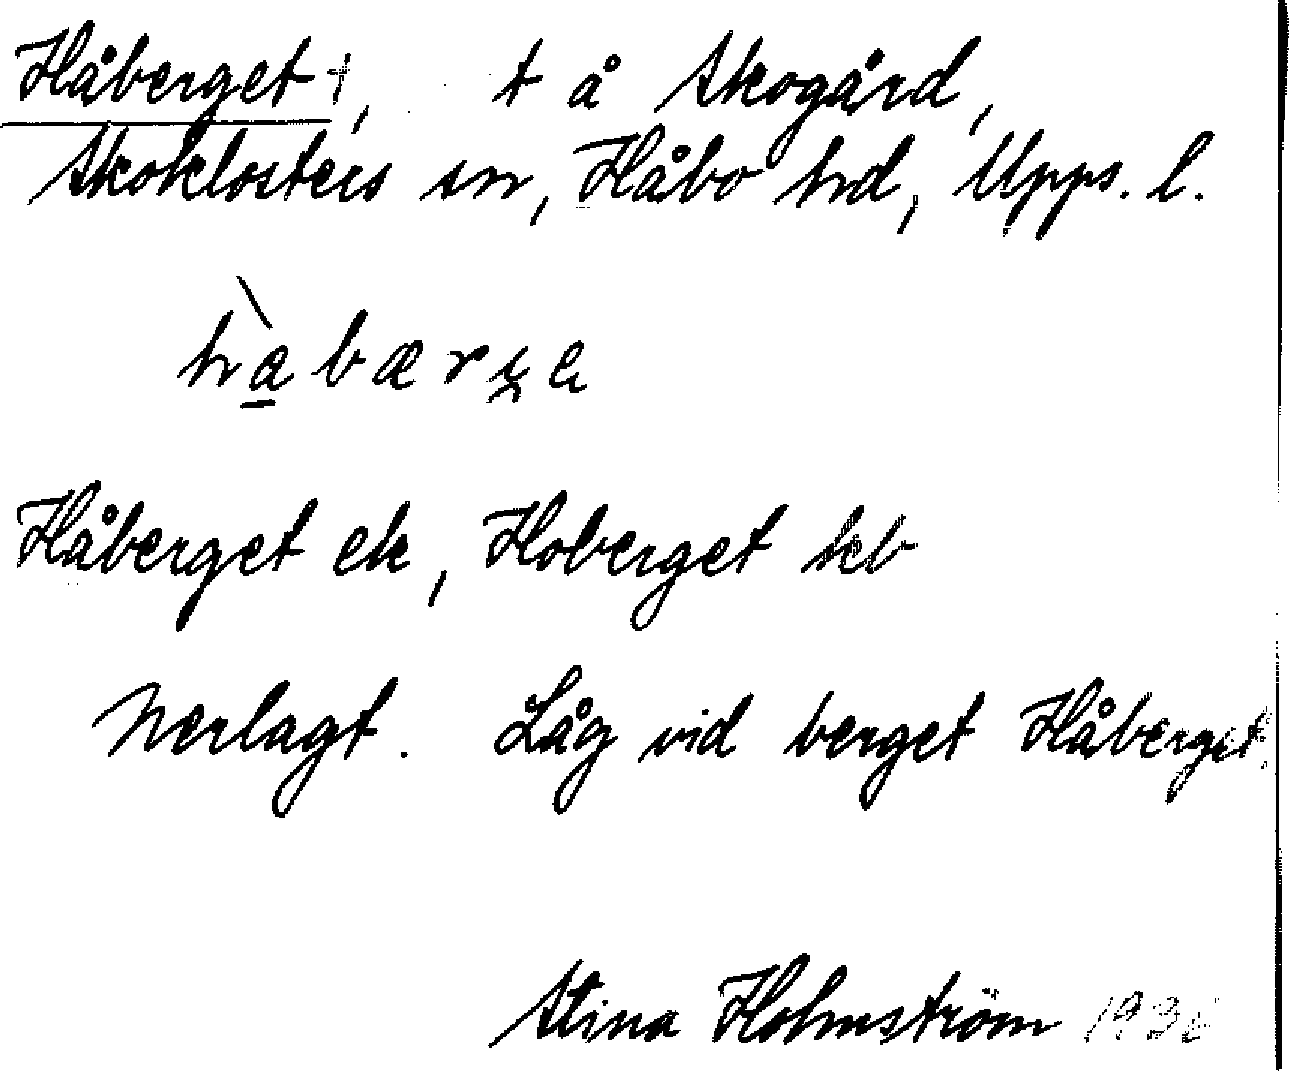 Håberget †, t å Skogård,
Skoklosters sn, Håbo hd, Upps. l.
Håberget ek, Hoberget skb
Nerlagt. Låg vid berget Håberget.
Stina Holmström